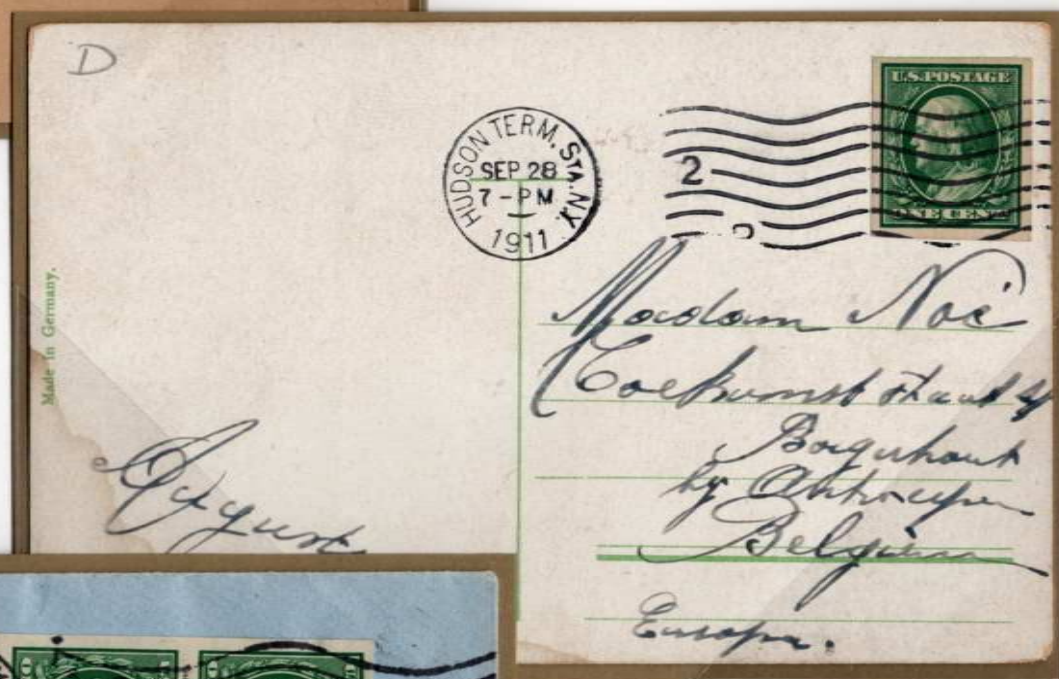 D
HUDSON TERM. STA. N.Y.
SEP 28
7 - PM
1911
2
U.S. POSTAGE
ONE CENT
Made in Germany.
August
Madam Noé
Borgerhout
by Antwerpen
Belgium
Europa.